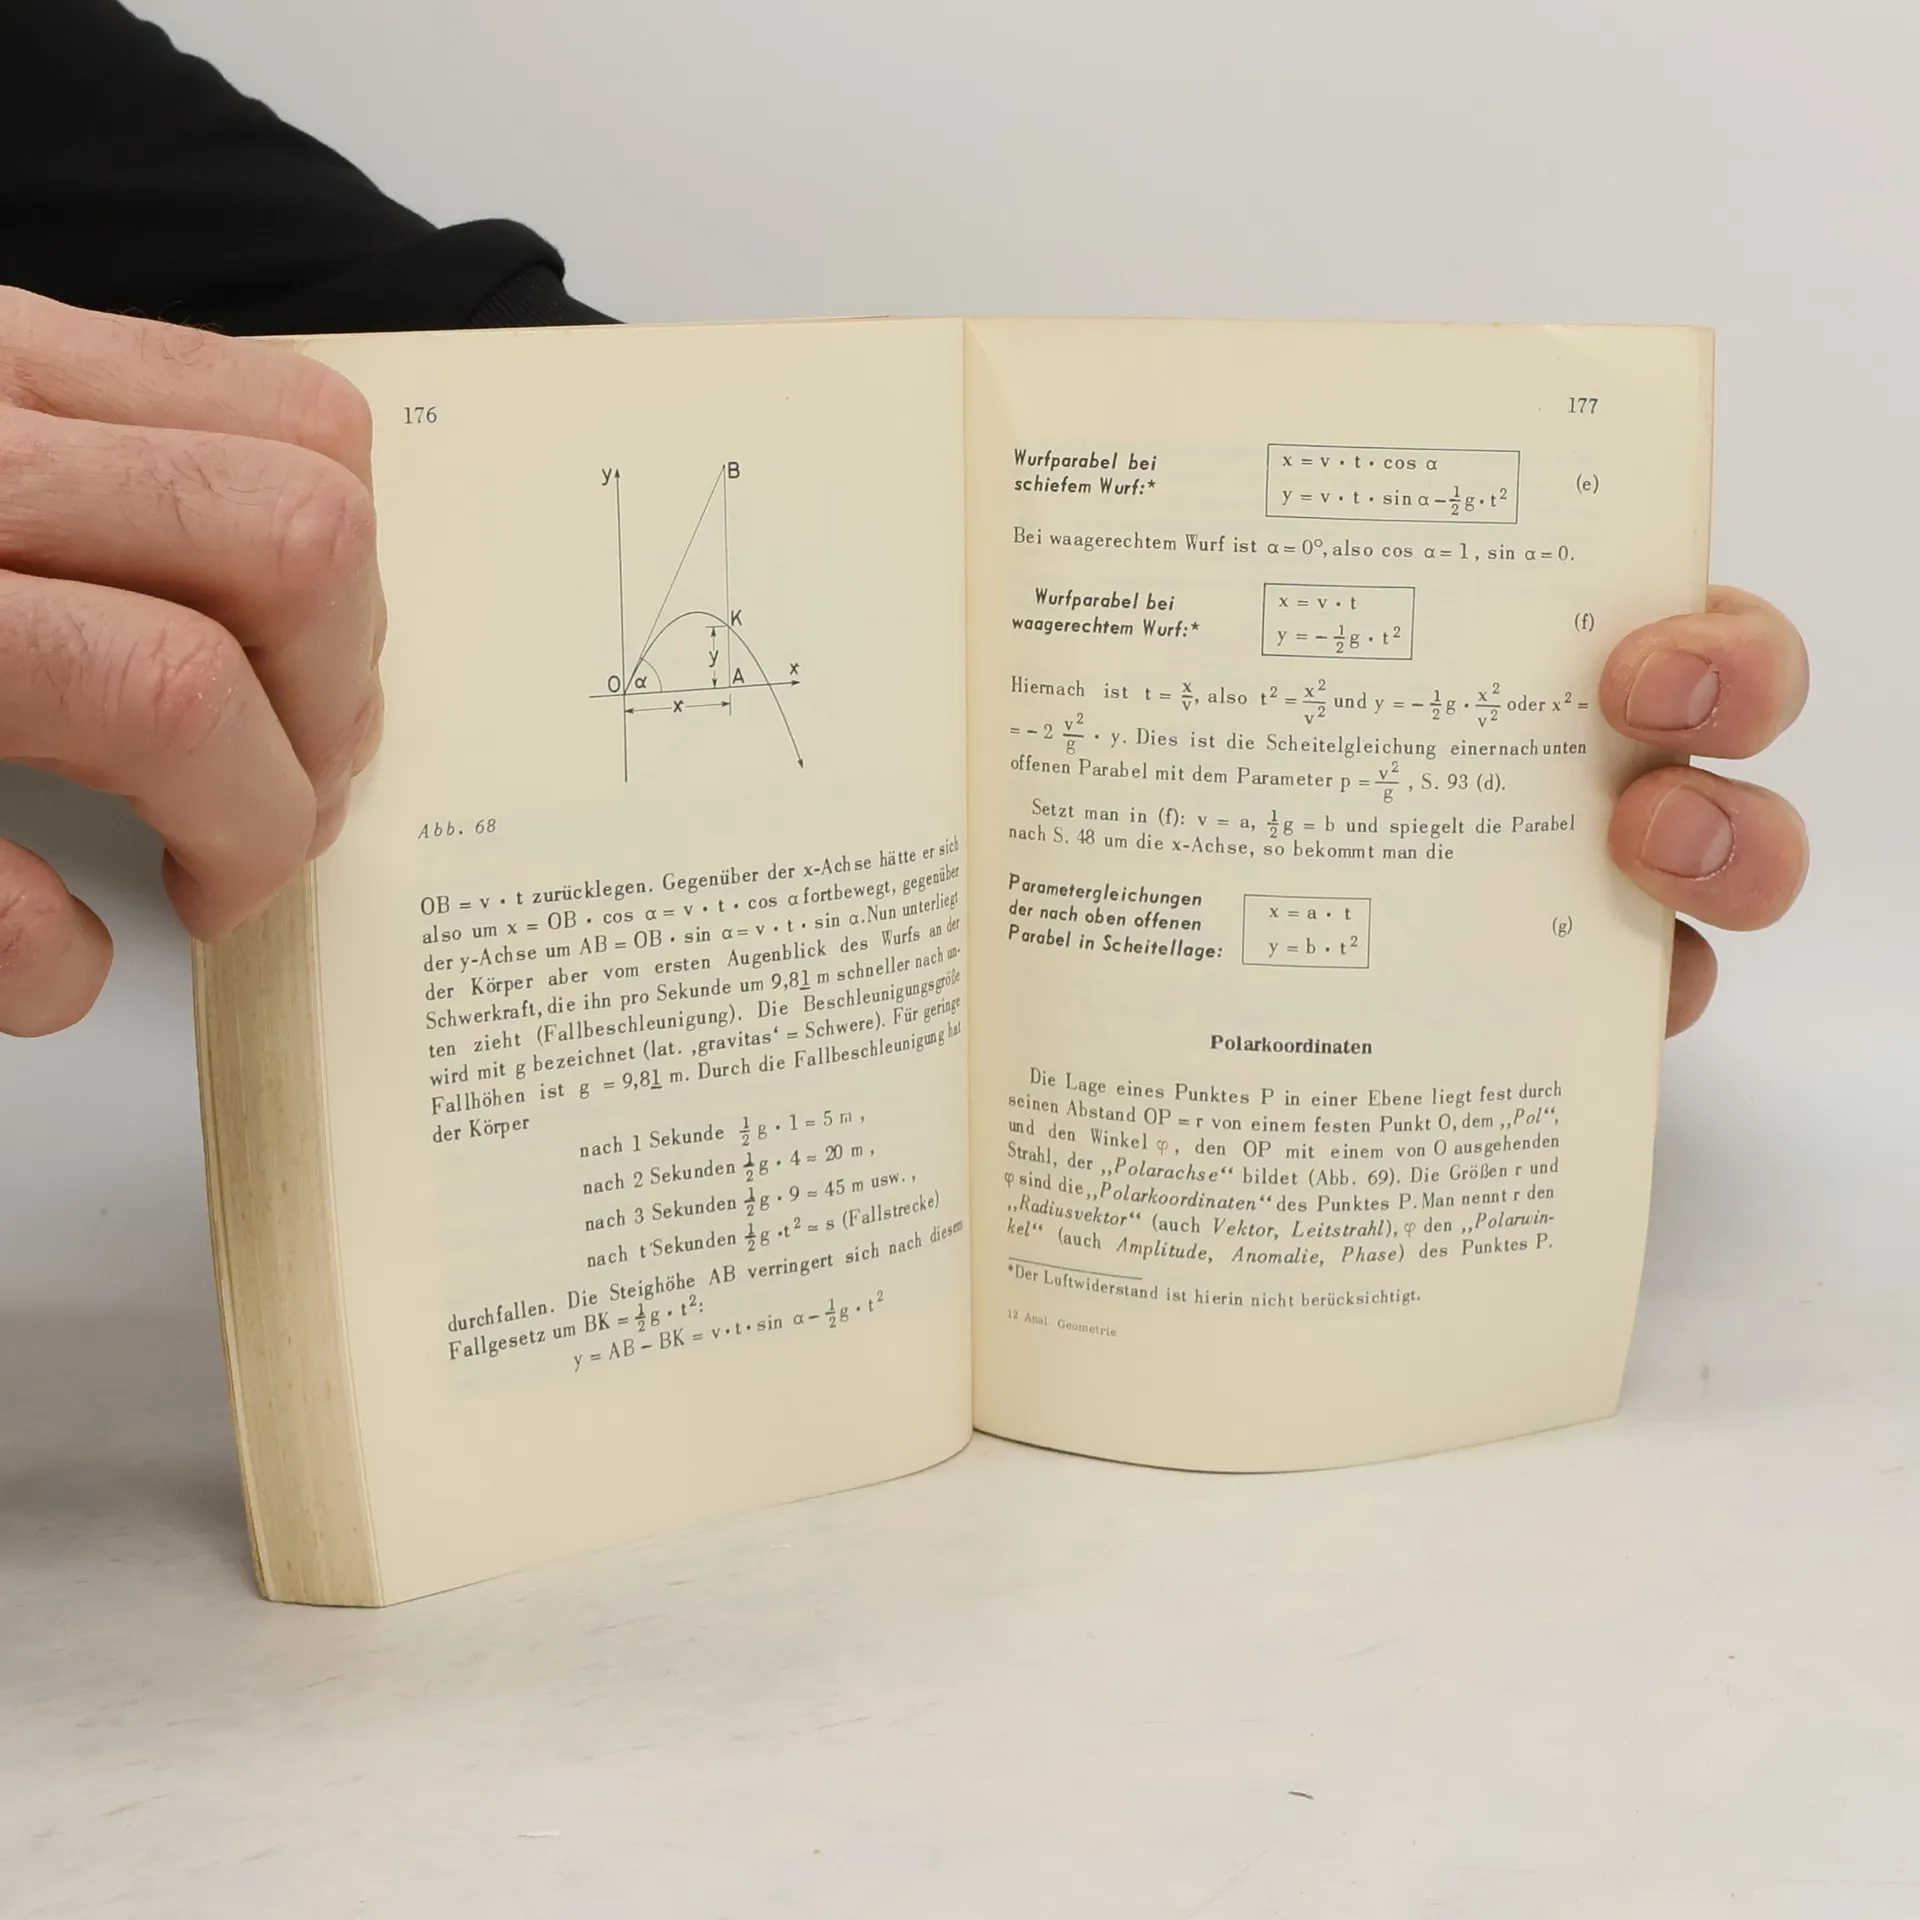 176
y
B
K
y
O
α
A
x
x
Abb. 68
OB = v · t zurücklegen. Gegenüber der x-Achse hätte er sich
also um x = OB · cos α = v · t · cos α fortbewegt, gegenüber
der y-Achse um AB = OB · sin α = v · t · sin α. Nun unterliegt
der Körper aber vom ersten Augenblick des Wurfs an der
Schwerkraft, die ihn pro Sekunde um 9,81 m schneller nach un-
ten zieht (Fallbeschleunigung). Die Beschleunigungsgröße
wird mit g bezeichnet (lat. ‚gravitas‘ = Schwere). Für geringe
Fallhöhen ist g = 9,81 m. Durch die Fallbeschleunigung hat
der Körper
nach 1 Sekunde ½ g · 1 ≈ 5 m ,
nach 2 Sekunden ½ g · 4 ≈ 20 m ,
nach 3 Sekunden ½ g · 9 ≈ 45 m usw. ,
nach t Sekunden ½ g · t² ≈ s (Fallstrecke)
durchfallen. Die Steighöhe AB verringert sich nach diesem
Fallgesetz um BK = ½ g · t²:
y = AB – BK = v · t · sin α – ½ g · t²
177
Wurfparabel bei
schiefem Wurf:*
x = v · t · cos α
y = v · t · sin α – ½ g · t²
(e)
Bei waagerechtem Wurf ist α = 0°, also cos α = 1, sin α = 0.
Wurfparabel bei
waagerechtem Wurf:*
x = v · t
y = – ½ g · t²
(f)
Hiernach ist t = x/v, also t² = x²/v² und y = – ½ g · x²/v² oder x² =
= – 2 v²/g · y. Dies ist die Scheitelgleichung einer nach unten
offenen Parabel mit dem Parameter p = v²/g , S. 93 (d).
Setzt man in (f): v = a, ½ g = b und spiegelt die Parabel
nach S. 48 um die x-Achse, so bekommt man die
Parametergleichungen
der nach oben offenen
Parabel in Scheitellage:
x = a · t
y = b · t²
(g)
Polarkoordinaten
Die Lage eines Punktes P in einer Ebene liegt fest durch
seinen Abstand OP = r von einem festen Punkt O, dem „Pol“,
und den Winkel φ, den OP mit einem von O ausgehenden
Strahl, der „Polarachse“ bildet (Abb. 69). Die Größen r und
φ sind die „Polarkoordinaten“ des Punktes P. Man nennt r den
„Radiusvektor“ (auch Vektor, Leitstrahl), φ den „Polarwin-
kel“ (auch Amplitude, Anomalie, Phase) des Punktes P.
*Der Luftwiderstand ist hierin nicht berücksichtigt.
12 Anal. Geometrie